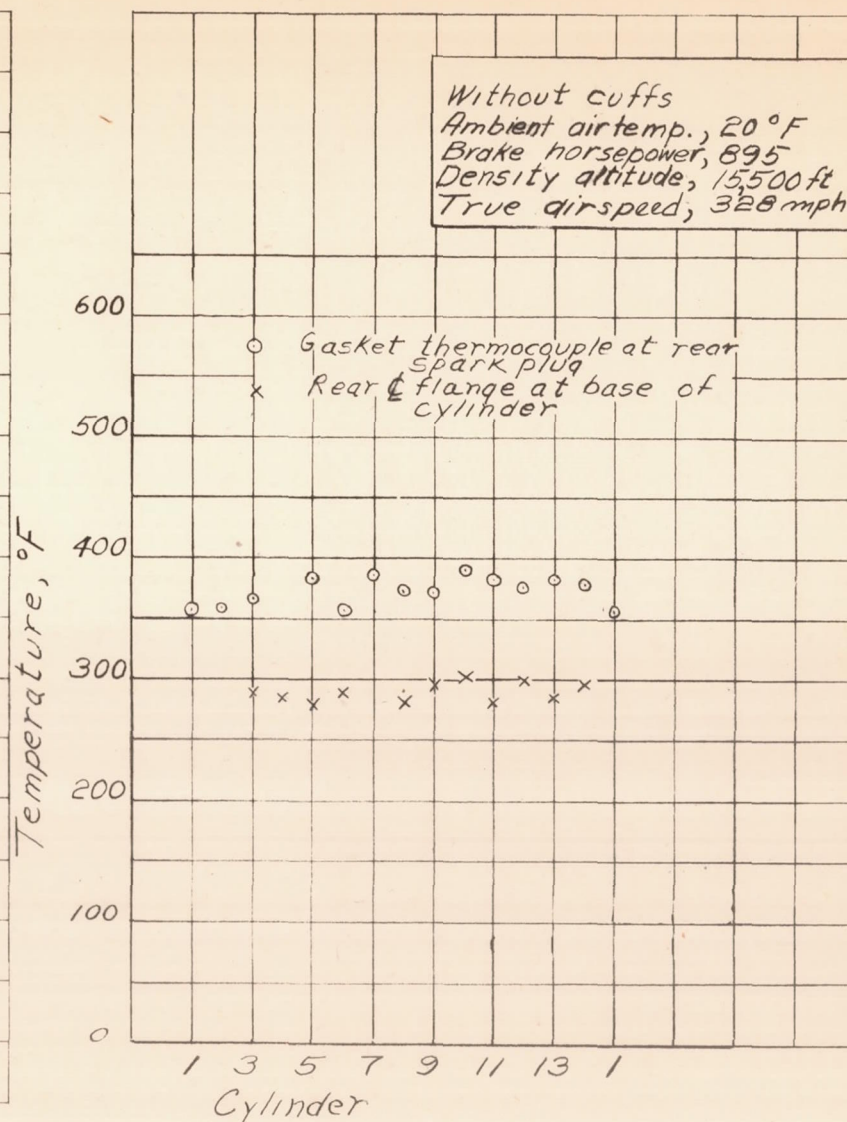 Without cuffs
Ambient air temp., 20 °F
Brake horsepower, 895
Density altitude, 15,500 ft
True airspeed, 328 mph
600
Gasket thermocouple at rear
spark plug
Rear ℄ flange at base of
cylinder
500
400
300
200
100
0
Temperature, °F
1 3 5 7 9 11 13 1
Cylinder